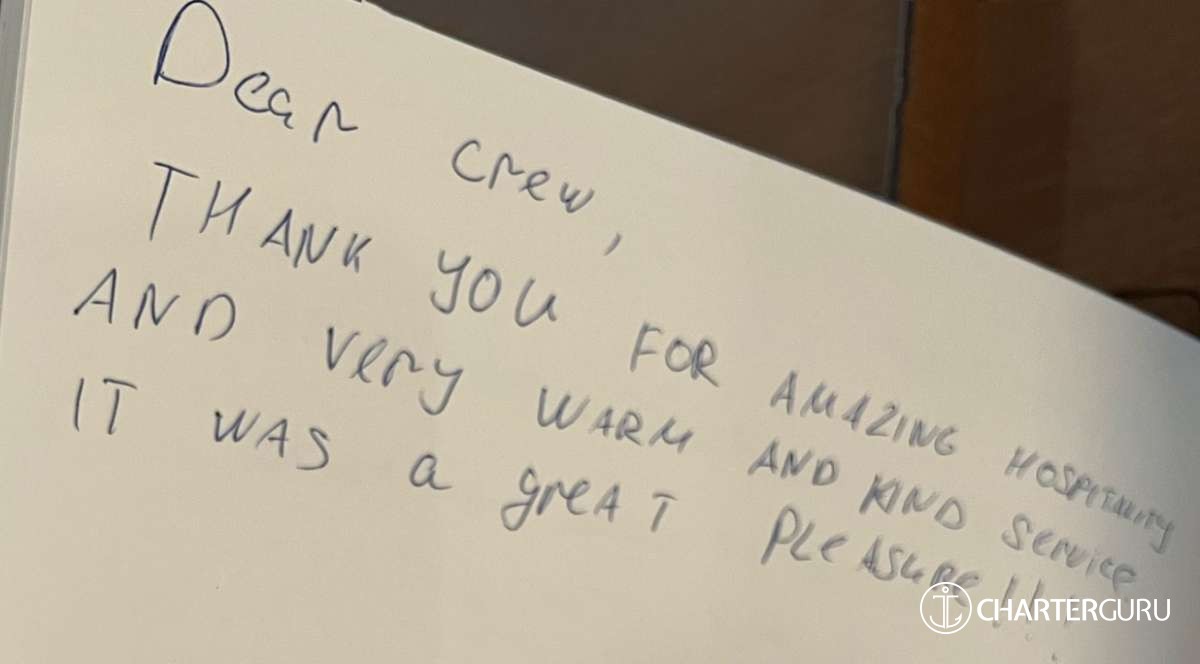 Dear crew,
THANK YOU FOR AMAZING HOSPITALITY
AND very WARM AND KIND service
IT WAS a greAT PLeASURE!!!
CHARTERGURU